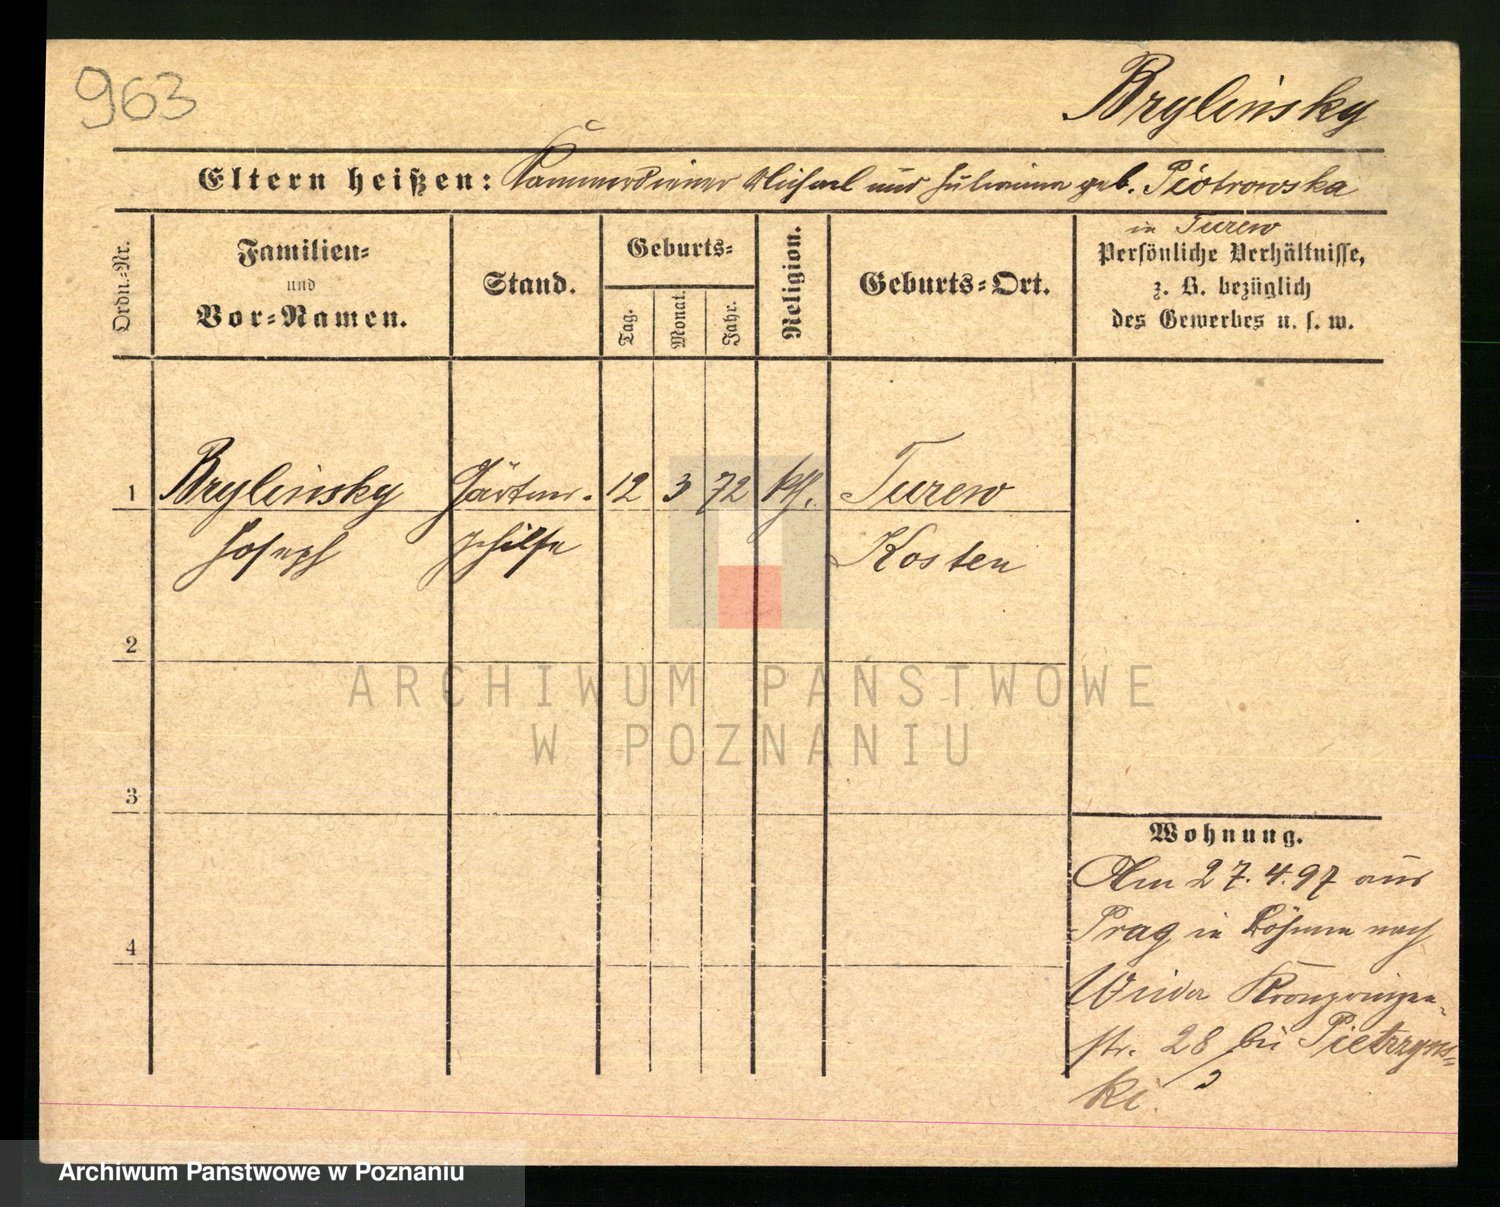 963
Brylinsky
Eltern heißen: Kammerdiener Michael und Julianna geb. Piotrowska
in Turew
Ordn.-Nr.
Familien- und Vor-Namen.
Stand.
Geburts-
Tag.
Monat.
Jahr.
Religion.
Geburts-Ort.
Persönliche Verhältnisse,
z. B. bezüglich
des Gewerbes u. s. w.
1 Brylinsky Gärtner- 12 3 72 kth. Turew
Joseph gehilfe Kosten
2
3
4
Wohnung.
Am 27.4.97 aus
Prag in Böhmen nach
Wilda Kronprinzen-
str. 28 bei Pietrzyns-
ki.
ARCHIWUM PAŃSTWOWE
W POZNANIU
Archiwum Państwowe w Poznaniu